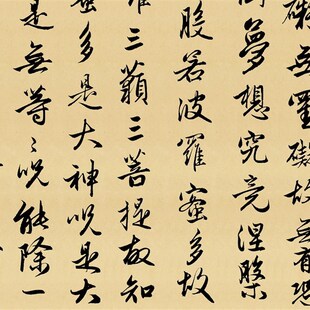 礙無罣礙故無有恐
夢想究竟涅槃
般若波羅蜜多故
三藐三菩提故知
多是大神呪是大
是無等〻呪能除一